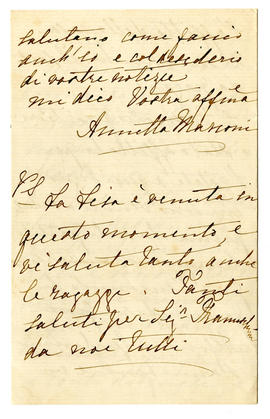 salutano come faccio
anch'io e col desiderio
di vostre notizie
mi dico Vostra affma
Annetta Marconi
PS La Lisa è venuta in
questo momento e
vi saluta tanto anche
le ragazze. Tanti
saluti per Sigr
da noi tutti